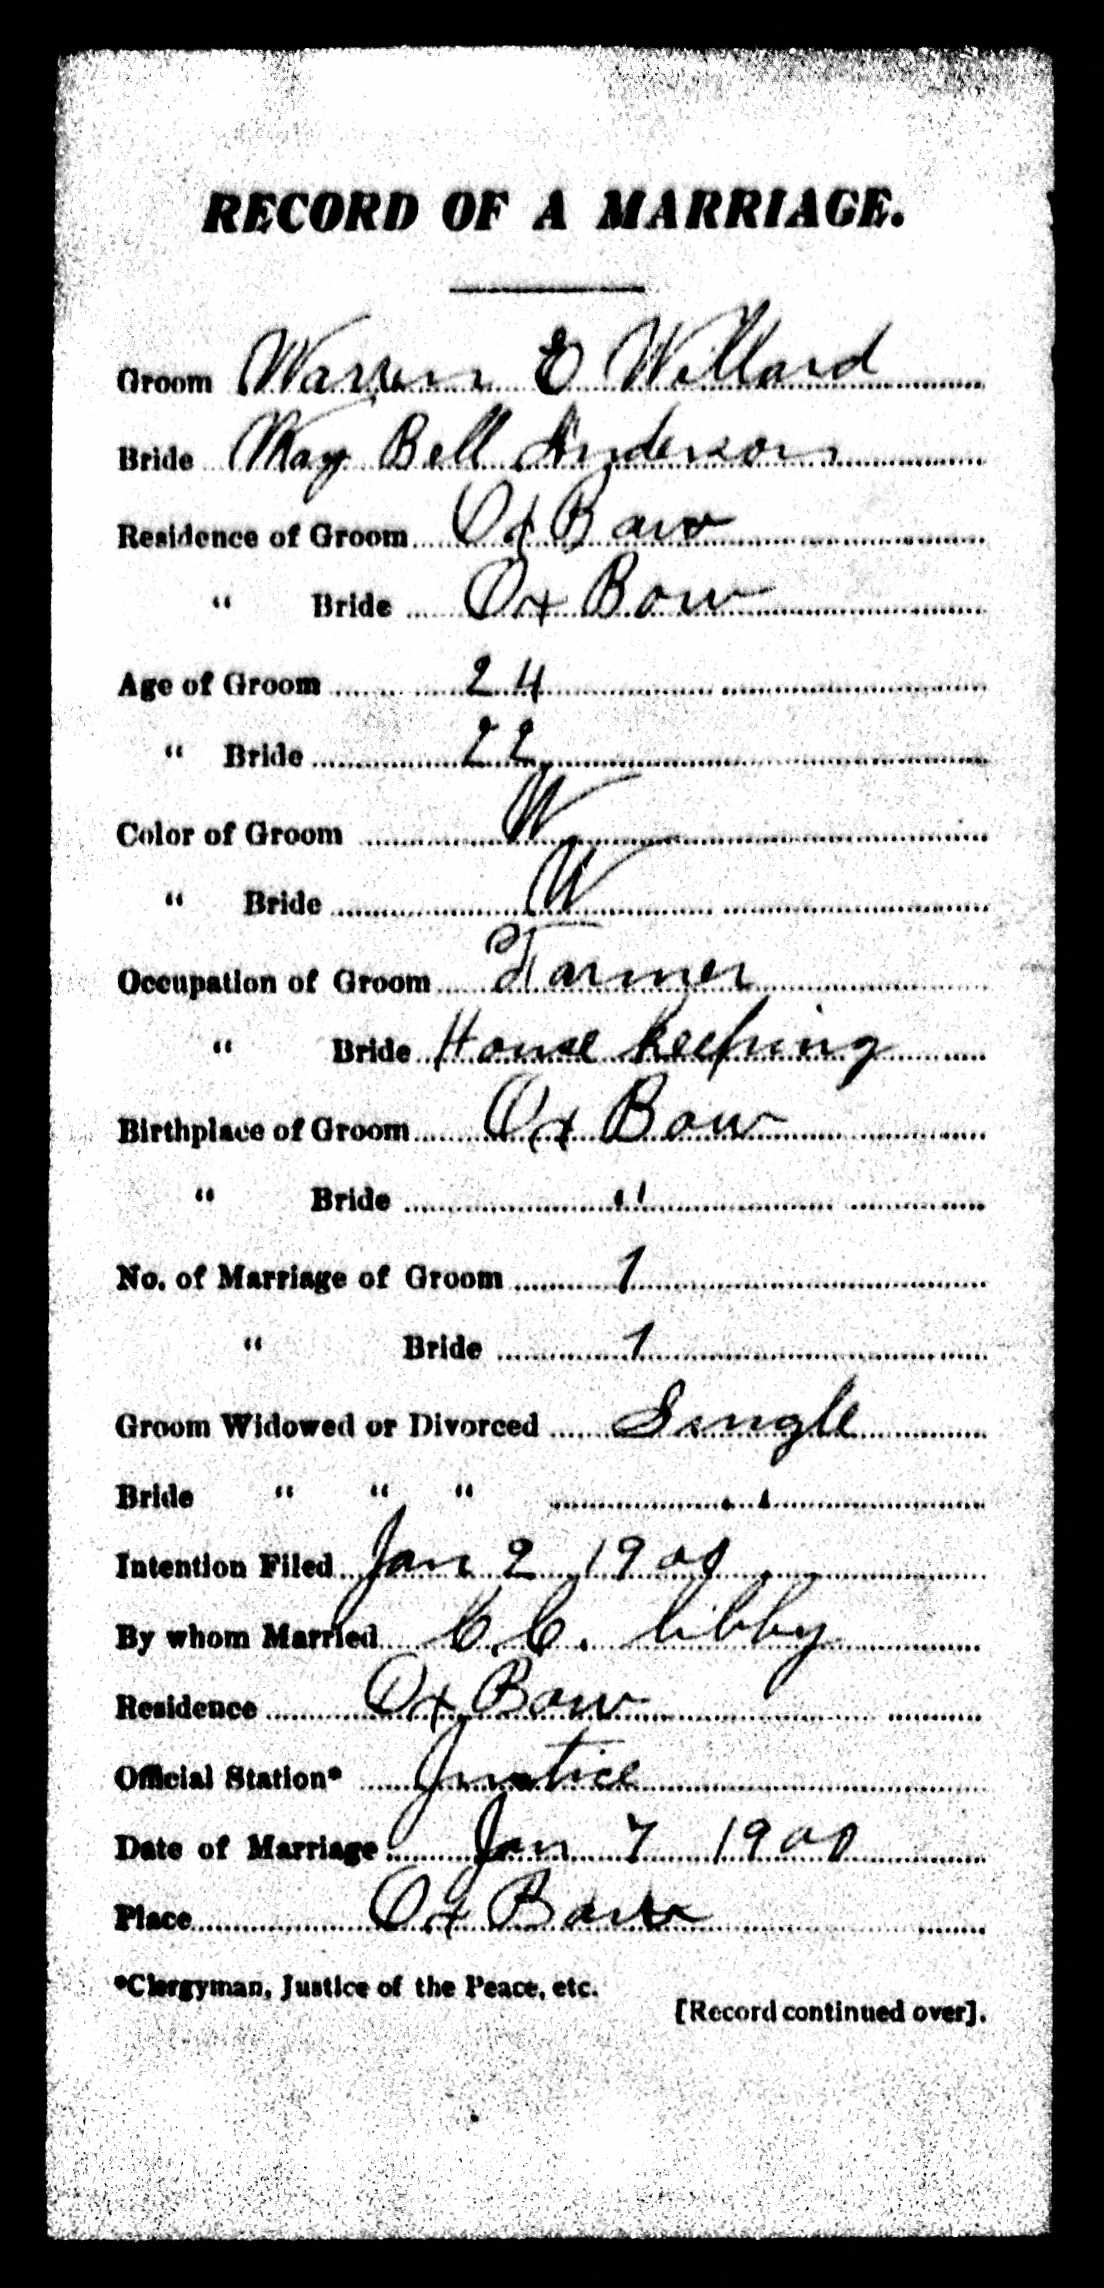 RECORD OF A MARRIAGE.
Groom Warren E Willard
Bride May Bell Anderson
Residence of Groom Ox Bow
" Bride Ox Bow
Age of Groom 24
" Bride 22
Color of Groom W
" Bride W
Occupation of Groom Farmer
" Bride House keeping
Birthplace of Groom Ox Bow
" Bride "
No. of Marriage of Groom 1
" Bride 1
Groom Widowed or Divorced Single
Bride " " " "
Intention Filed Jan 2 1900
By whom Married C. C. Libby
Residence Ox Bow
Official Station* Justice
Date of Marriage Jan 7 1900
Place Ox Bow
*Clergyman, Justice of the Peace, etc.
[Record continued over].